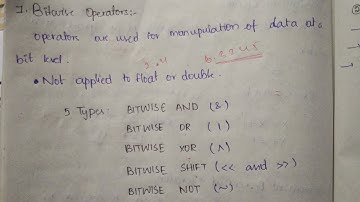 7. Bitwise Operators:-
operators are used for manupulation of data at a
bit level.
2.4 6.8245
• Not applied to float or double.
5 Types: BITWISE AND (&)
BITWISE OR (|)
BITWISE XOR (^)
BITWISE SHIFT (<< and >>)
BITWISE NOT (~)